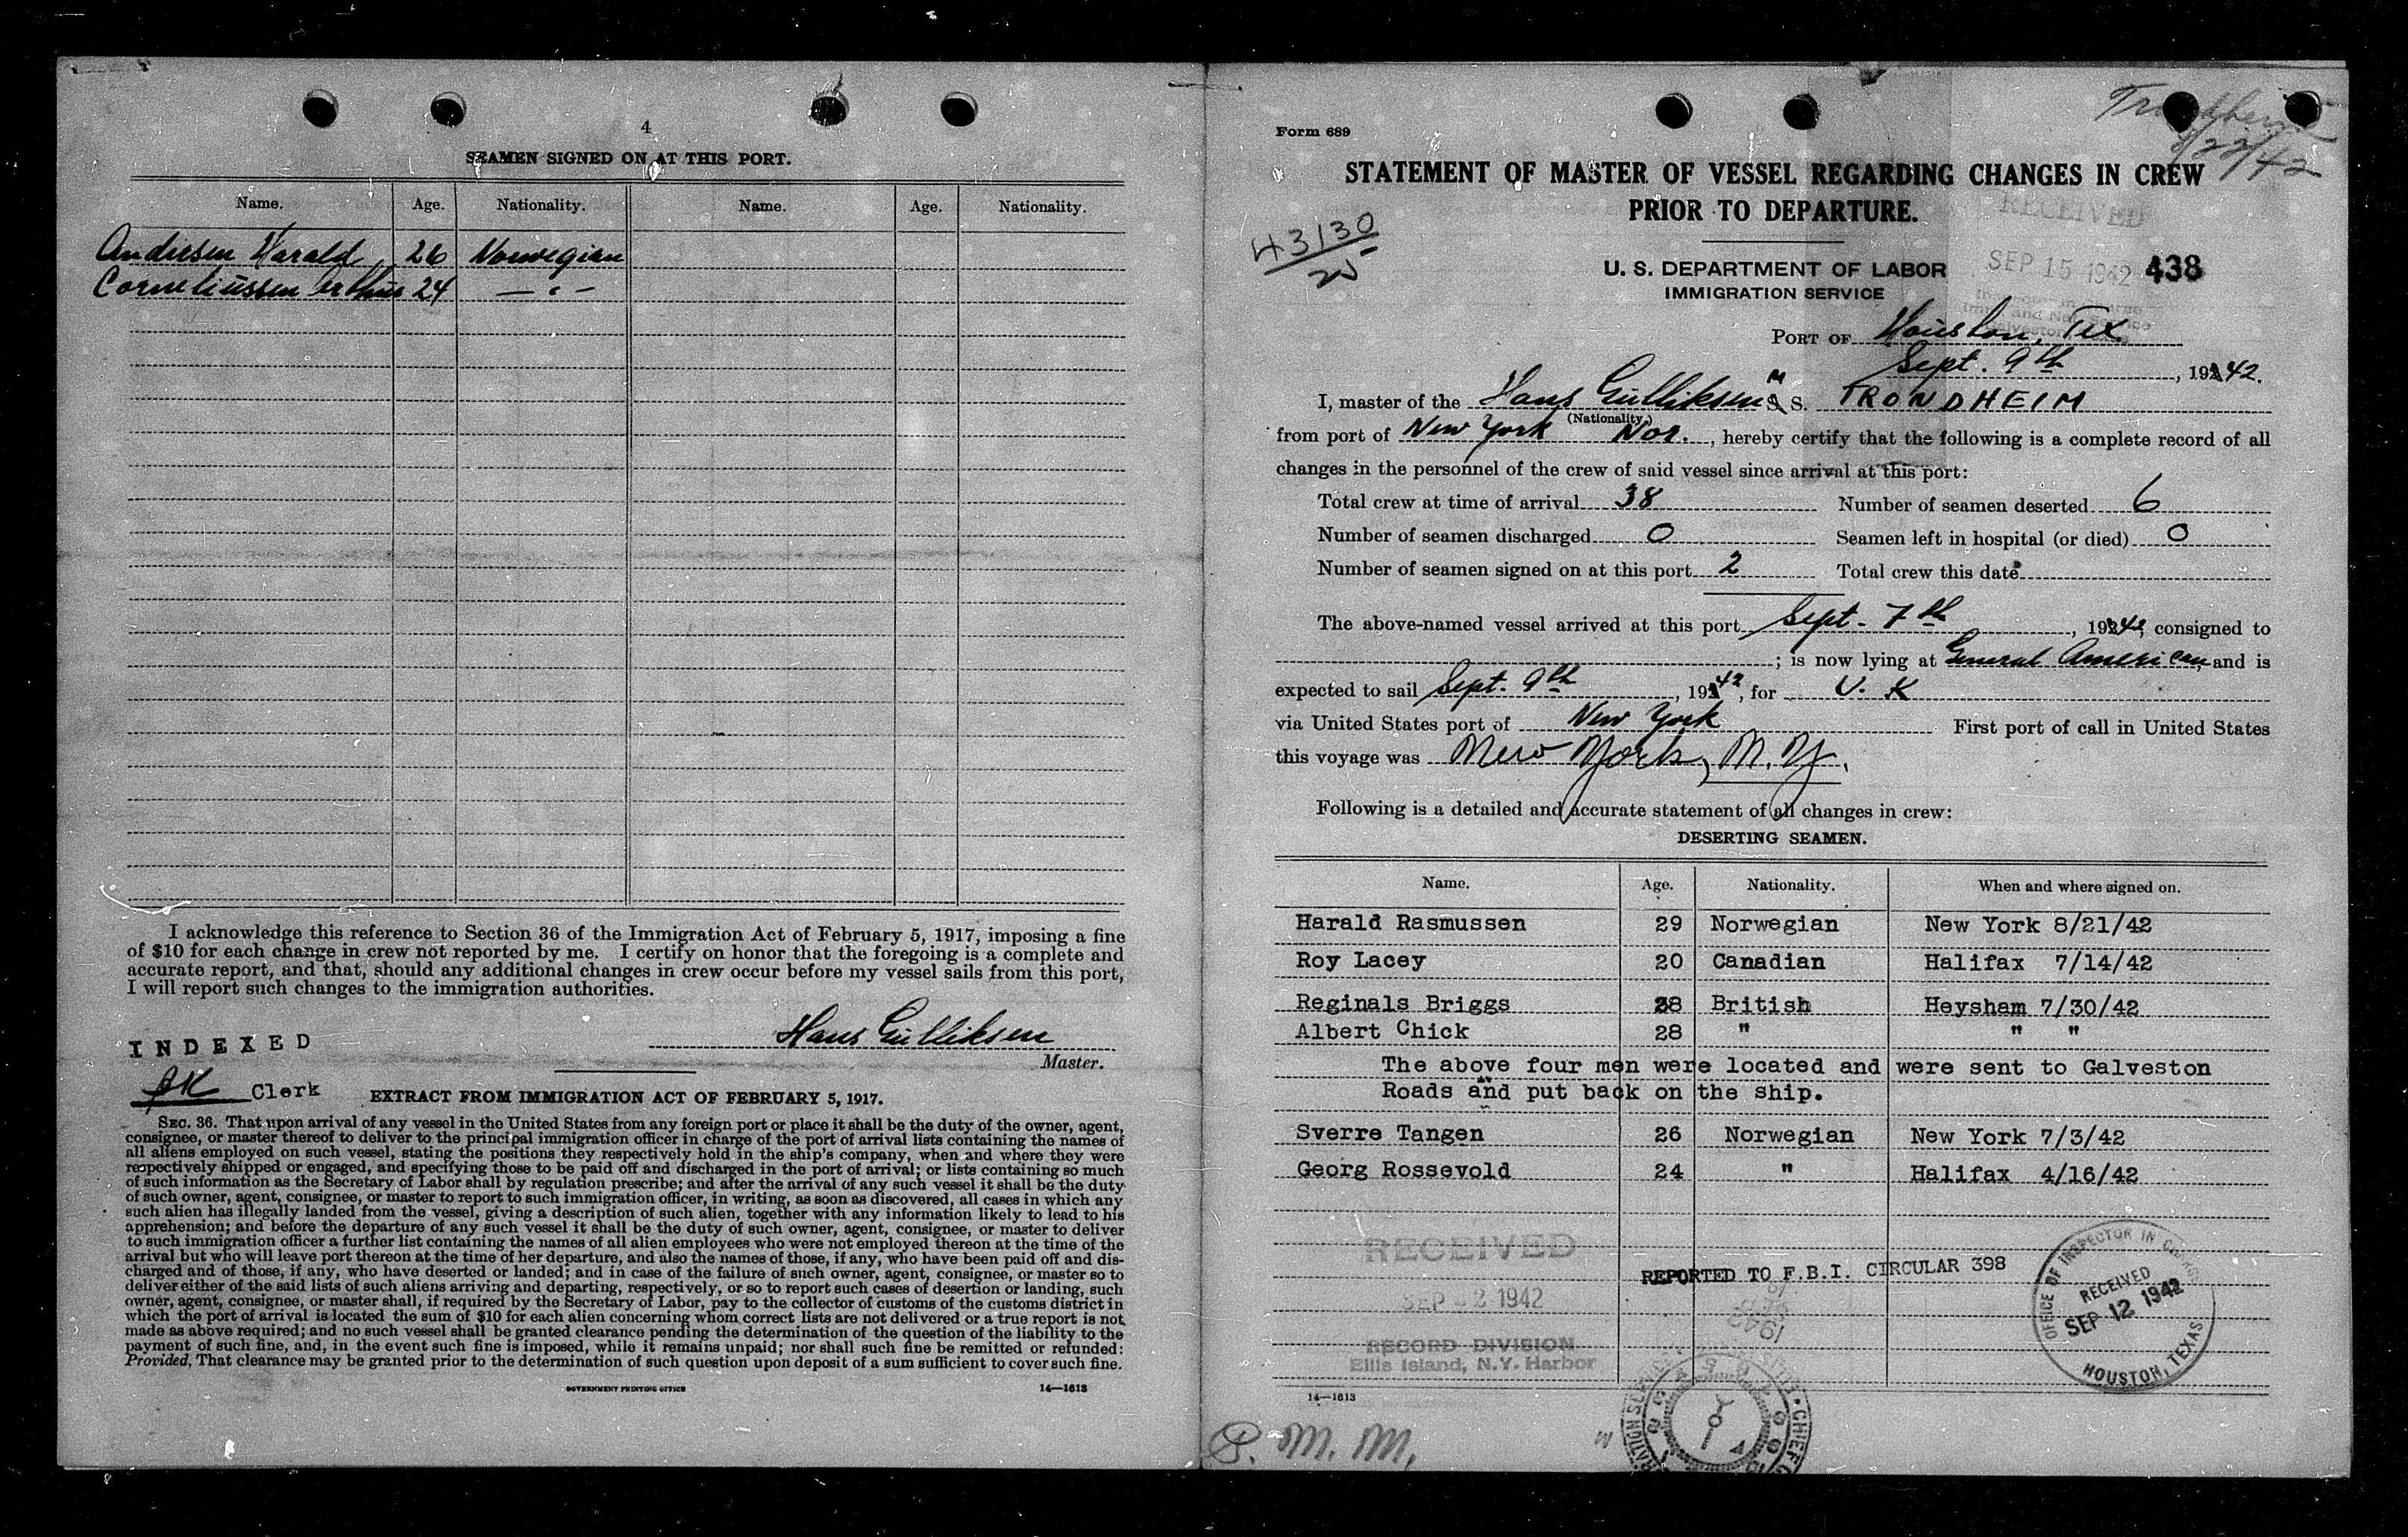 4
SEAMEN SIGNED ON AT THIS PORT.
Name. Age. Nationality. Name. Age. Nationality.
Andresen Harald 26 Norwegian
Corneliussen Arthur 24 — " —
I acknowledge this reference to Section 36 of the Immigration Act of February 5, 1917, imposing a fine
of $10 for each change in crew not reported by me. I certify on honor that the foregoing is a complete and
accurate report, and that, should any additional changes in crew occur before my vessel sails from this port,
I will report such changes to the immigration authorities.
Hans Gulliksen
Master.
INDEXED
Clerk
EXTRACT FROM IMMIGRATION ACT OF FEBRUARY 5, 1917.
SEC. 36. That upon arrival of any vessel in the United States from any foreign port or place it shall be the duty of the owner, agent,
consignee, or master thereof to deliver to the principal immigration officer in charge of the port of arrival lists containing the names of
all aliens employed on such vessel, stating the positions they respectively hold in the ship's company, when and where they were
respectively shipped or engaged, and specifying those to be paid off and discharged in the port of arrival; or lists containing so much
of such information as the Secretary of Labor shall by regulation prescribe; and after the arrival of any such vessel it shall be the duty
of such owner, agent, consignee, or master to report to such immigration officer, in writing, as soon as discovered, all cases in which any
such alien has illegally landed from the vessel, giving a description of such alien, together with any information likely to lead to his
apprehension; and before the departure of any such vessel it shall be the duty of such owner, agent, consignee, or master to deliver
to such immigration officer a further list containing the names of all alien employees who were not employed thereon at the time of the
arrival but who will leave port thereon at the time of her departure, and also the names of those, if any, who have been paid off and dis-
charged and of those, if any, who have deserted or landed; and in case of the failure of such owner, agent, consignee, or master so to
deliver either of the said lists of such aliens arriving and departing, respectively, or so to report such cases of desertion or landing, such
owner, agent, consignee, or master shall, if required by the Secretary of Labor, pay to the collector of customs of the customs district in
which the port of arrival is located the sum of $10 for each alien concerning whom correct lists are not delivered or a true report is not
made as above required; and no such vessel shall be granted clearance pending the determination of the question of the liability to the
payment of such fine, and, in the event such fine is imposed, while it remains unpaid; nor shall such fine be remitted or refunded:
Provided, That clearance may be granted prior to the determination of such question upon deposit of a sum sufficient to cover such fine.
GOVERNMENT PRINTING OFFICE 14—1613
Form 689
8/22/42
STATEMENT OF MASTER OF VESSEL REGARDING CHANGES IN CREW
PRIOR TO DEPARTURE.
RECEIVED
43130
25
U. S. DEPARTMENT OF LABOR
SEP 15 1942 438
IMMIGRATION SERVICE
PORT OF Houston, Tex.
Sept. 9th, 1942.
I, master of the Hans Gulliksen M S. TRONDHEIM
(Nationality.)
from port of New York Nor., hereby certify that the following is a complete record of all
changes in the personnel of the crew of said vessel since arrival at this port:
Total crew at time of arrival 38 Number of seamen deserted 6
Number of seamen discharged 0 Seamen left in hospital (or died) 0
Number of seamen signed on at this port 2 Total crew this date
The above-named vessel arrived at this port Sept. 7th, 1942, consigned to
; is now lying at General American, and is
expected to sail Sept. 9th, 1942, for U. K
via United States port of New York First port of call in United States
this voyage was New York, N.Y.
Following is a detailed and accurate statement of all changes in crew:
DESERTING SEAMEN.
Name. Age. Nationality. When and where signed on.
Harald Rasmussen 29 Norwegian New York 8/21/42
Roy Lacey 20 Canadian Halifax 7/14/42
Reginals Briggs 38 British Heysham 7/30/42
Albert Chick 28 " " "
The above four men were located and were sent to Galveston
Roads and put back on the ship.
Sverre Tangen 26 Norwegian New York 7/3/42
Georg Rossevold 24 " Halifax 4/16/42
RECEIVED
SEP - 2 1942
RECORD DIVISION
Ellis Island, N.Y. Harbor
REPORTED TO F.B.I. CIRCULAR 398
OFFICE OF INSPECTOR IN CHARGE
RECEIVED
SEP 12 1942
HOUSTON, TEXAS
14—1613